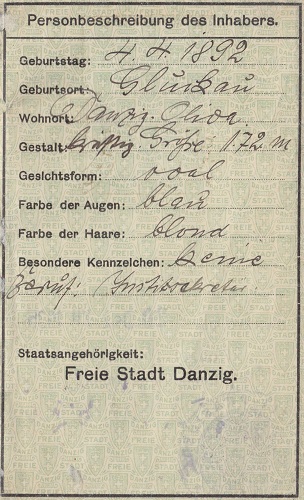 Personbeschreibung des Inhabers.
Geburtstag: 4. 4. 1892
Geburtsort: Gluckau
Wohnort: Danzig-Oliva.
Gestalt: kräftig. Größe 1.72 m
Gesichtsform: oval
Farbe der Augen: blau
Farbe der Haare: blond
Besondere Kennzeichen: keine
Beruf: Justizsekretär.
Staatsangehörigkeit:
Freie Stadt Danzig.